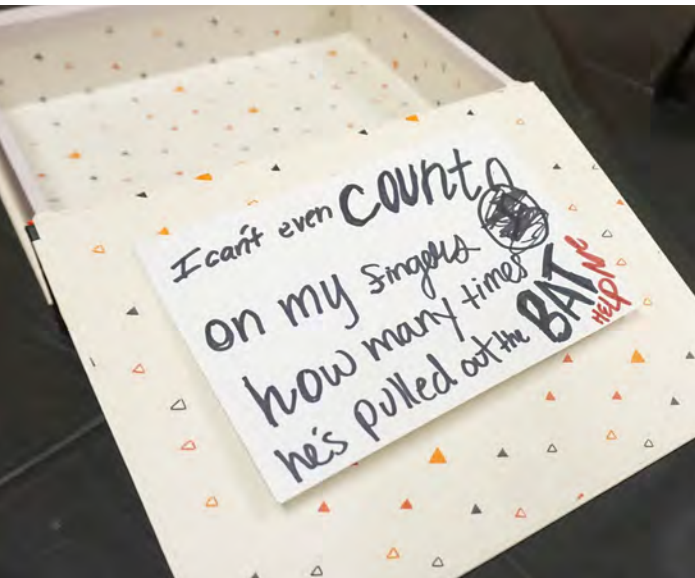 I can't even COUNT
on my fingers
how many times
he's pulled out the BAT
HELP ME